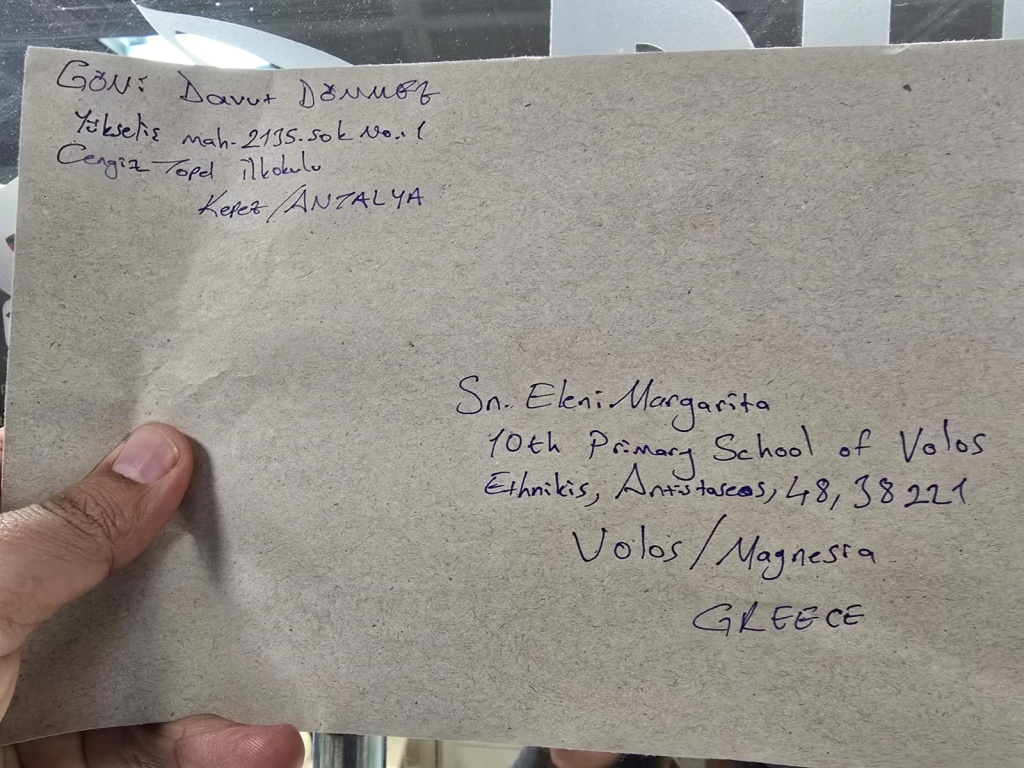 Gön: Davut DÖNMEZ
Yükseliş mah. 2135. sok No: 1
Cengiz Topel ilkokulu
Kepez / ANTALYA
Sn. Eleni Margarita
10th Primary School of Volos
Ethnikis, Antistaseos, 48, 38221
Volos / Magnesia
GREECE